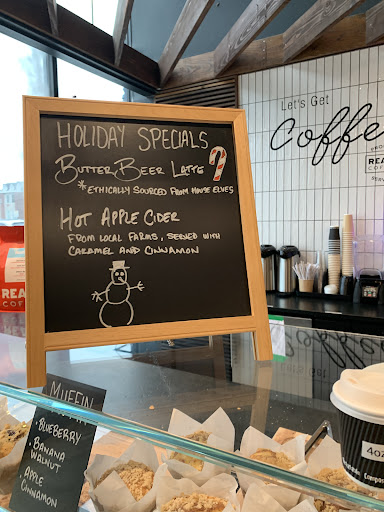 HOLIDAY SPECIALS
BUTTER BEER LATTE
*ETHICALLY SOURCED FROM HOUSE ELVES
HOT APPLE CIDER
FROM LOCAL FARMS, SERVED WITH
CARAMEL AND CINNAMON
Let's Get
Coffee
REA
REA
MUFFIN
• BLUEBERRY
• BANANA
WALNUT
APPLE
CINNAMON
4oz